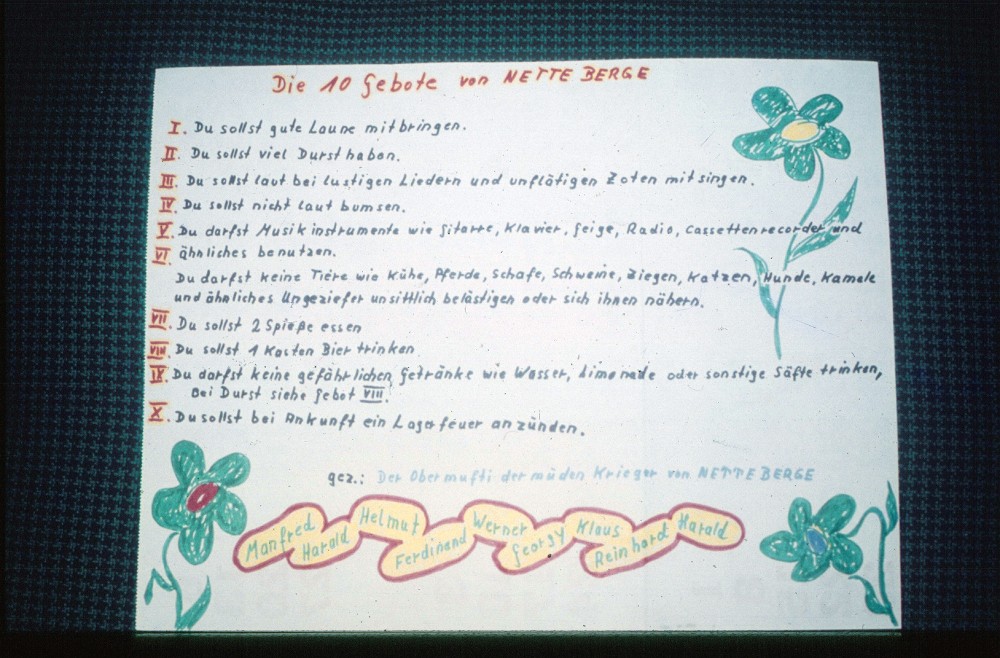 Die 10 Gebote von NETTE BERGE
I. Du sollst gute Laune mitbringen.
II. Du sollst viel Durst haben.
III. Du sollst laut bei lustigen Liedern und unflätigen Zoten mitsingen.
IV. Du sollst nicht laut bumsen.
V. Du darfst Musikinstrumente wie Gitarre, Klavier, Geige, Radio, Cassettenrecorder und
VI. ähnliches benutzen.
Du darfst keine Tiere wie Kühe, Pferde, Schafe, Schweine, Ziegen, Katzen, Hunde, Kamele
und ähnliches Ungeziefer unsittlich belästigen oder sich ihnen nähern.
VII. Du sollst 2 Spieße essen
VIII. Du sollst 1 Kasten Bier trinken
IX. Du darfst keine gefährlichen Getränke wie Wasser, Limonade oder sonstige Säfte trinken,
Bei Durst siehe Gebot VIII.
X. Du sollst bei Ankunft ein Lagerfeuer anzünden.
gez.: Der Obermufti der müden Krieger von NETTE BERGE
Manfred Harald Helmut Ferdinand Werner Georgy Klaus Reinhard Harald